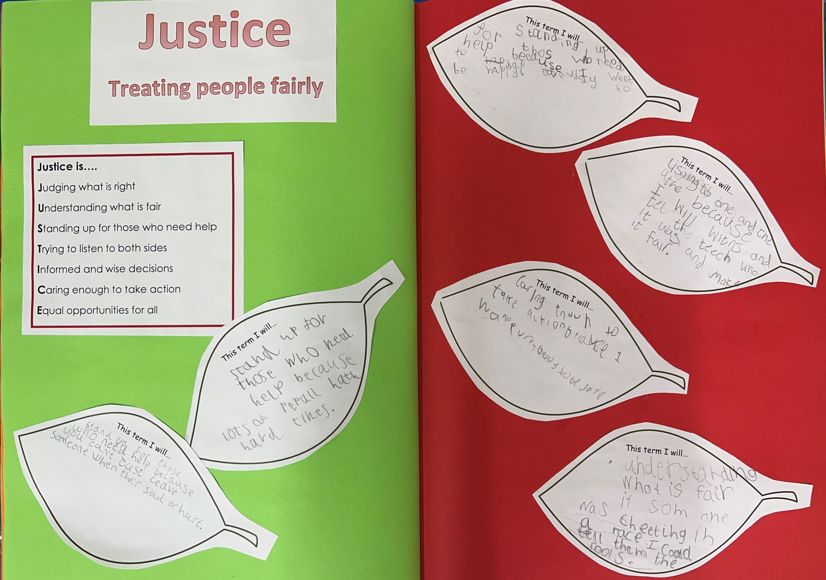 Justice
Treating people fairly
Justice is....
Judging what is right
Understanding what is fair
Standing up for those who need help
Trying to listen to both sides
Informed and wise decisions
Caring enough to take action
Equal opportunities for all
This term I will...
stand up for
those who need
help because
lots of hath
hard times.
This term I will...
stand up for those
who need help because
you can't just leave
someone when their sad or hurt.
This term I will...
for standing up
to help thos who need
because I want to
be happy.
This term I will...
to one and the
the because
I will witns and
tel the teech who
it was and make
it fair.
This term I will...
caring enough to
take action I
want to be safe
This term I will...
understanding
what is fair
if som one
was cheeting in
a race I coud
tell them the
rools.